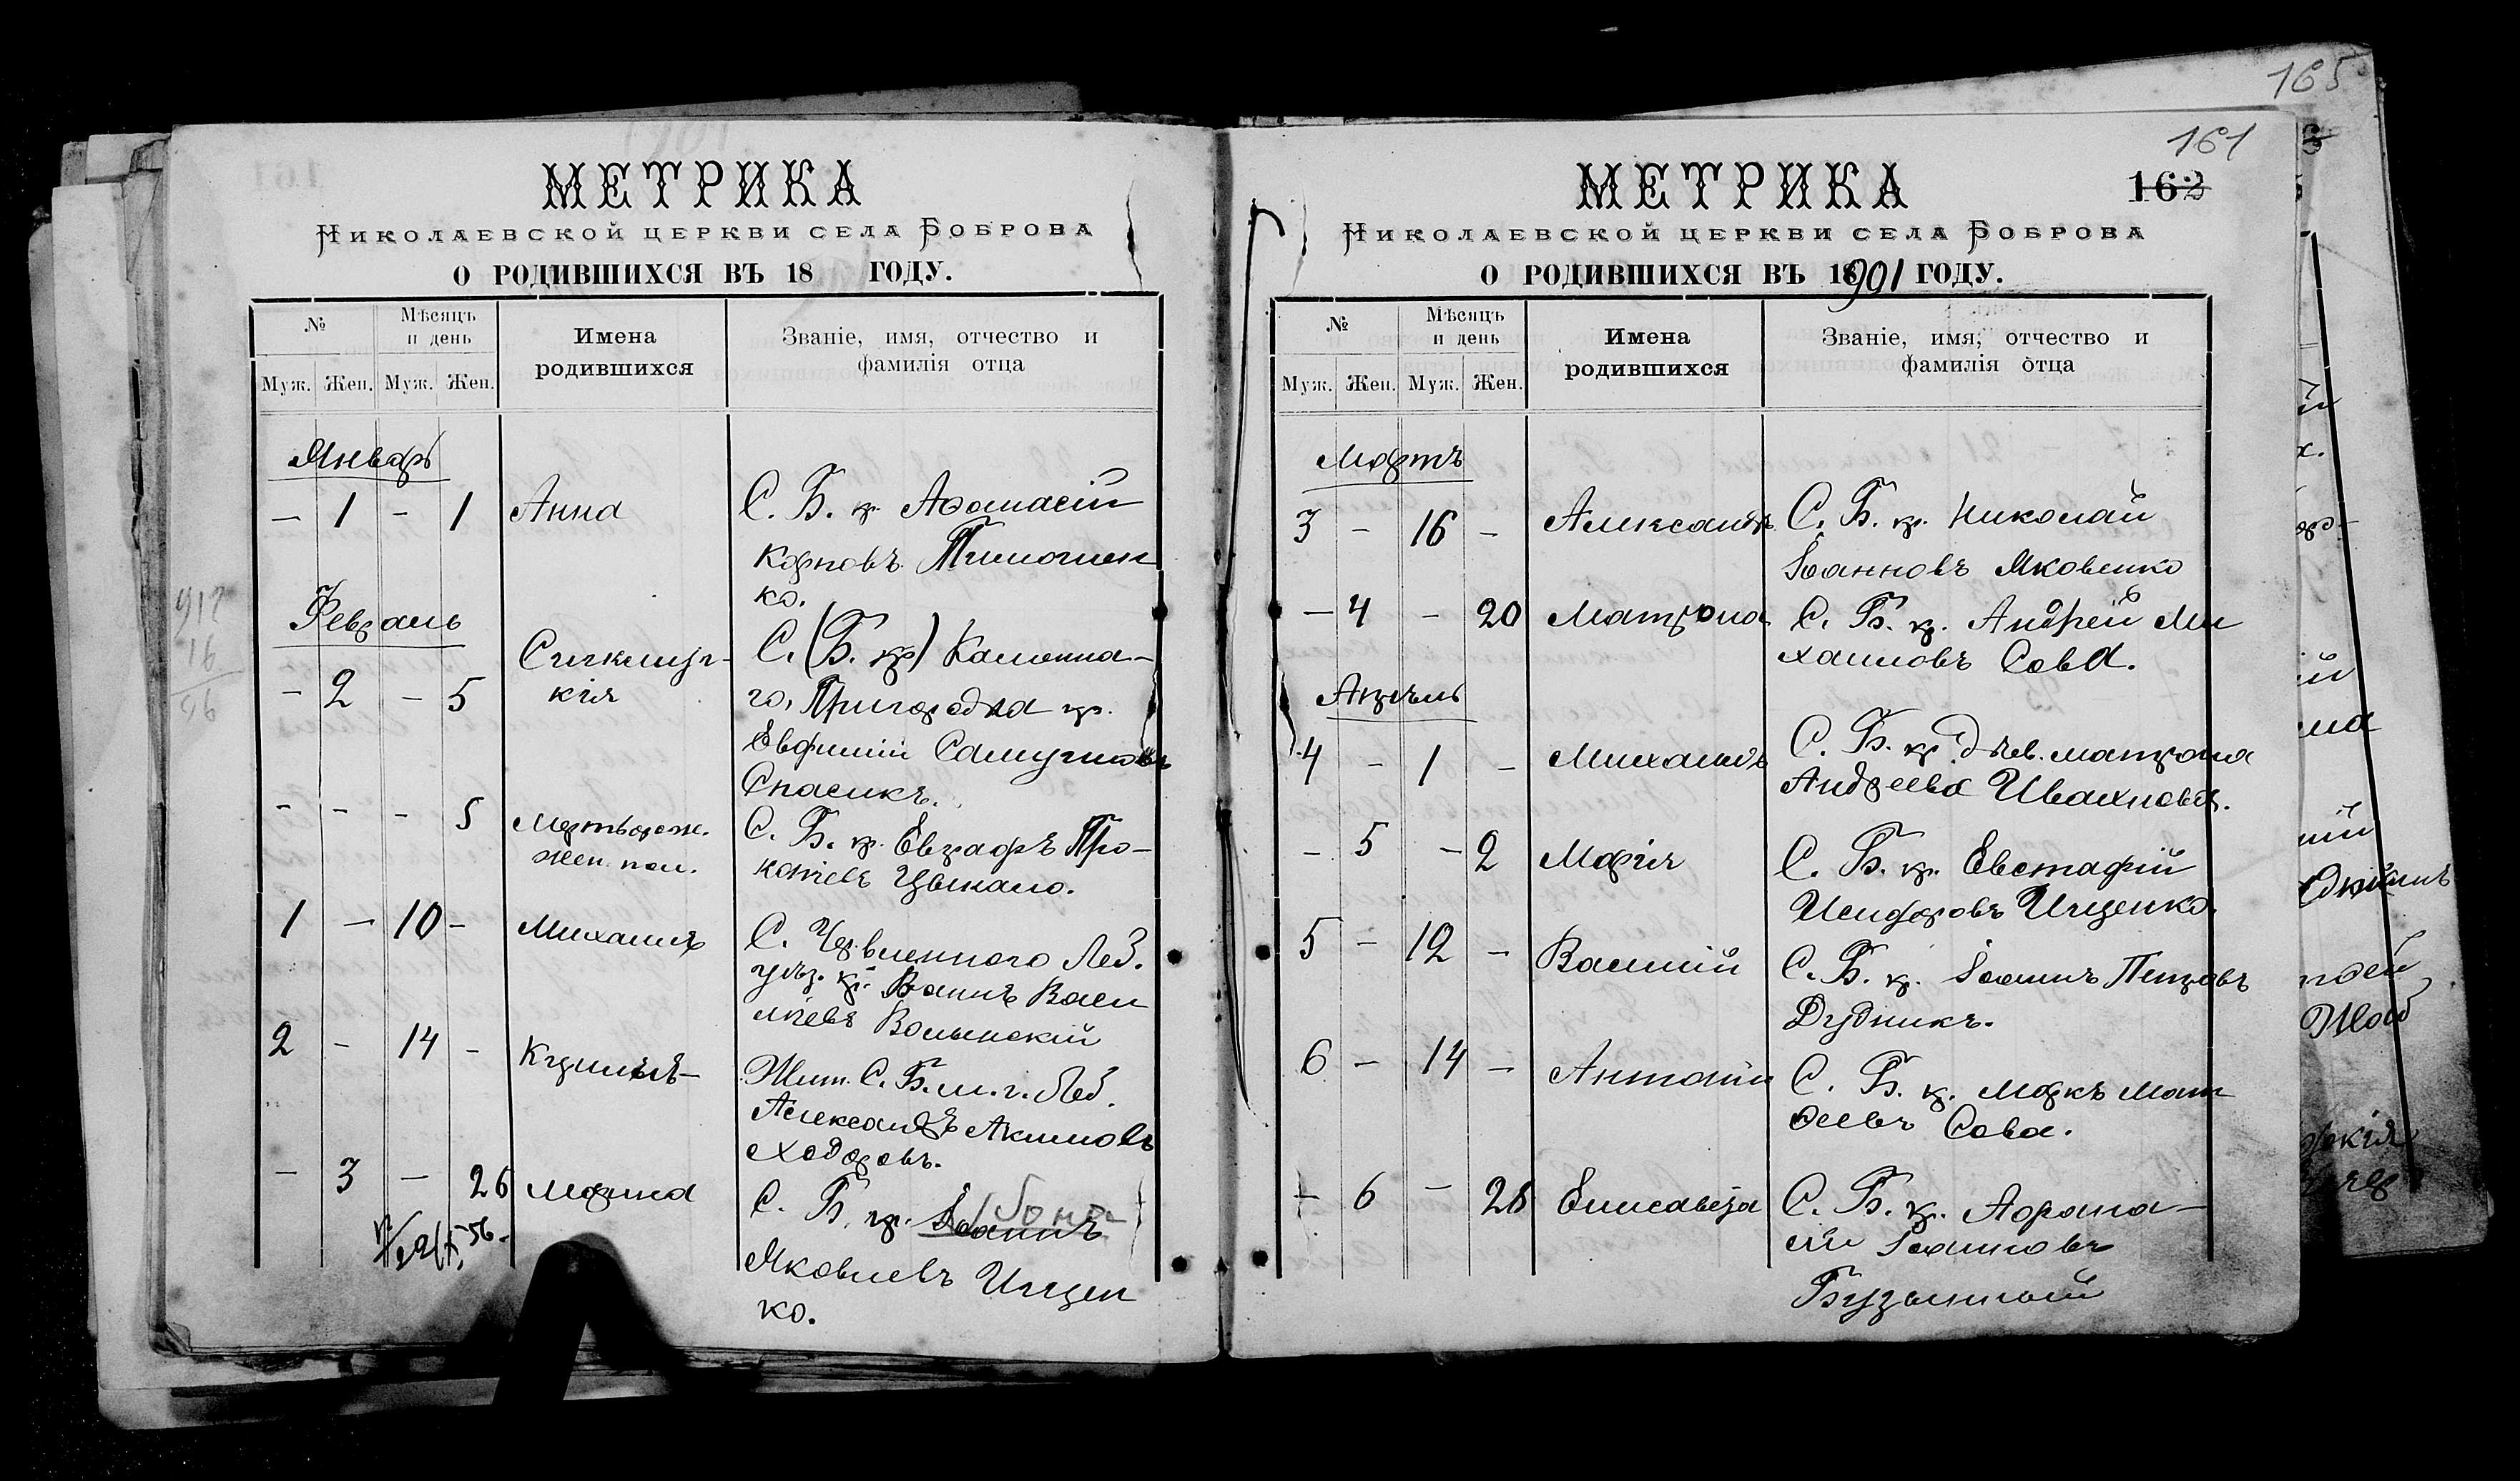 МЕТРИКА
Николаевской церкви села Боброва
О РОДИВШИХСЯ ВЪ 18 ГОДУ.
№
Мѣсяцъ и день
Имена родившихся
Званіе, имя, отчество и фамилія отца
Муж. Жен. Муж. Жен.
Январь
— 1 - 1 Анна С. Б. кр. Аѳанасій
Карповъ Тимошен
ко.
Февраль
- 2 - 5 Сигклити-
кія
С. (Б. кр) Каменна-
го, Пригородка кр.
Евфимій
Спасикъ.
- - - 5 Мертворож.
жен. пол.
С. Б. кр. Евграфъ Про-
копіевъ Цыкало.
1 - 10 - Михаилъ С. Червленного Леб.
уѣз. кр. Іоаннъ Васи
ліевъ Волынскій
2 - 14 - Кириллъ Жит. С. Б. м. г. Леб.
Александръ Акимовъ
Ходоровъ.
- 3 - 26 Марина С. Б. кр. Іоаннъ
Яковлевъ Ищен
ко.
165
161
162
МЕТРИКА
Николаевской церкви села Боброва
О РОДИВШИХСЯ ВЪ 18901 ГОДУ.
№
Мѣсяцъ и день
Имена родившихся
Званіе, имя, отчество и фамилія отца
Муж. Жен. Муж. Жен.
Мартъ
3 - 16 - Александръ С. Б. кр. Николай
Іоанновъ Яковенко
- 4 - 20 Матрона С. Б. кр. Андрей Ми
хаиловъ Сова.
Апрѣль
4 - 1 - Михаилъ С. Б. кр. дѣв. Матрона
Андреева Ивахнова.
- 5 - 2 Марія С. Б. кр. Евстафій
Исидоровъ Ищенко.
5 - 12 - Василій С. Б. кр. Іоаннъ Петровъ
Дудникъ.
6 - 14 - Антоній С. Б. кр. Маркъ Мат
ѳеевъ Сова.
- 6 - 28 Елисавета С. Б. кр. Аѳана-
сій Іоанновъ